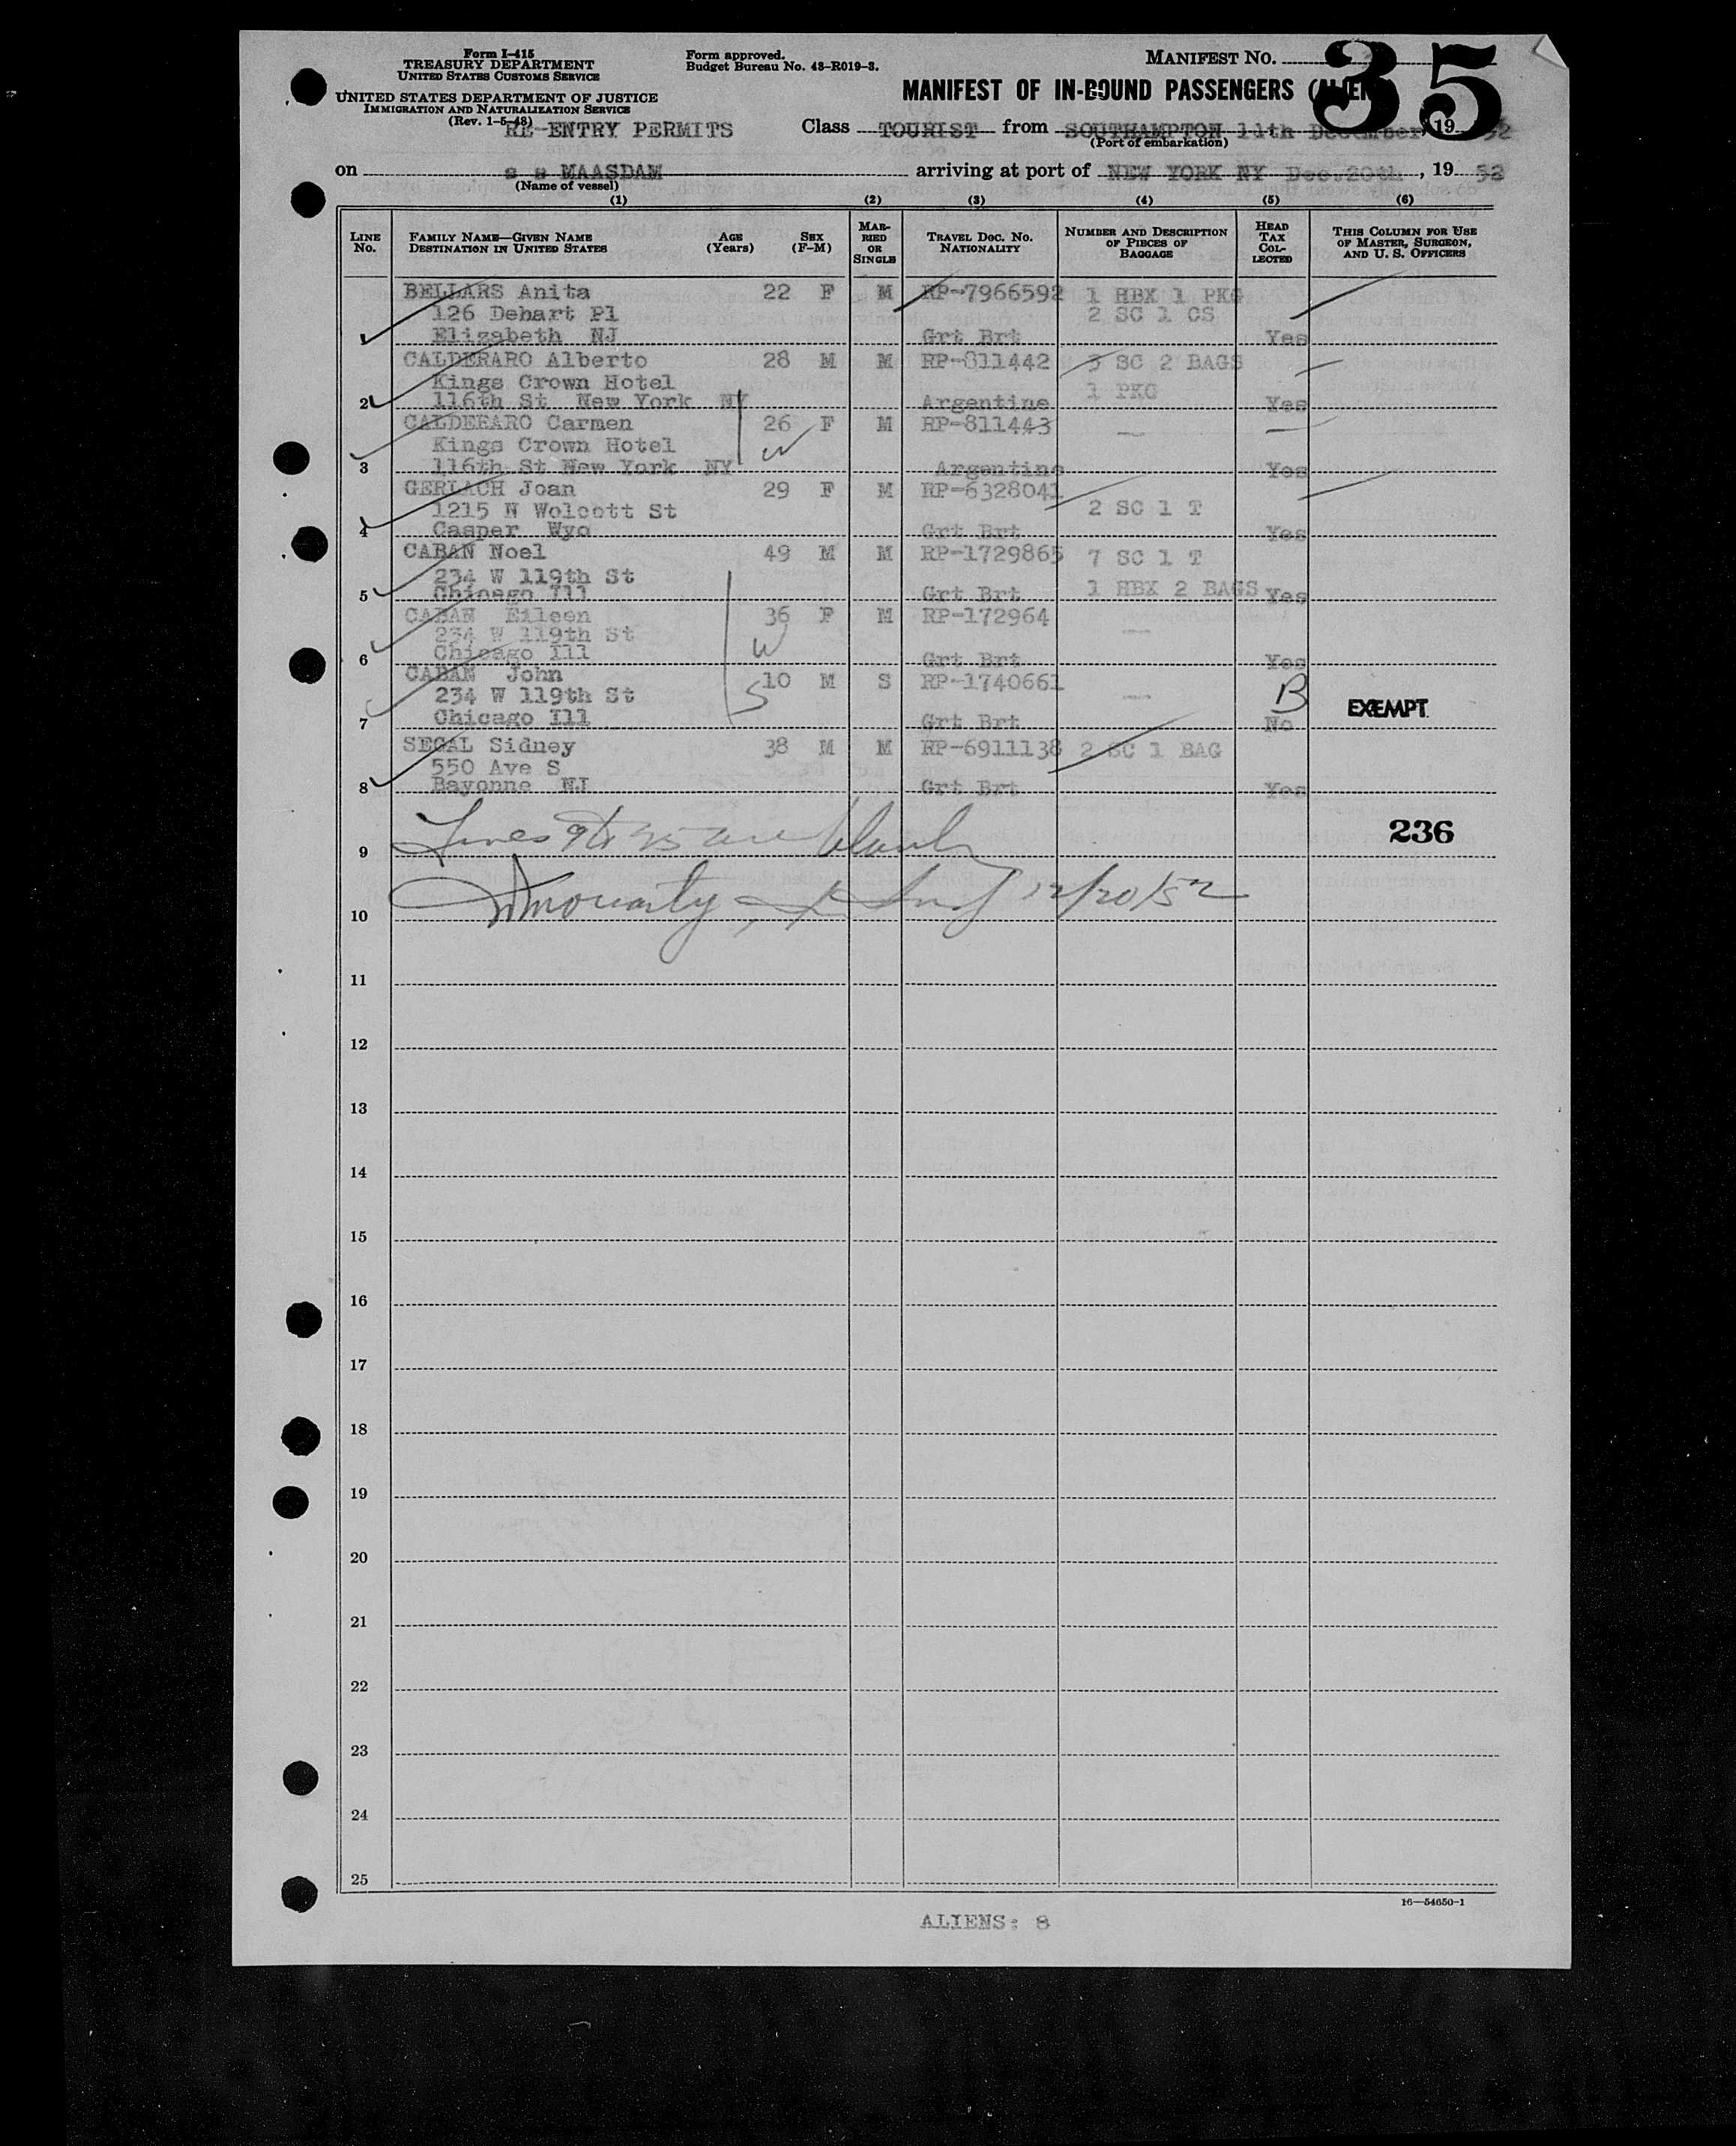 Form I-415
TREASURY DEPARTMENT
UNITED STATES CUSTOMS SERVICE
Form approved.
Budget Bureau No. 43-R019-3.
MANIFEST No. 35
UNITED STATES DEPARTMENT OF JUSTICE
IMMIGRATION AND NATURALIZATION SERVICE
(Rev. 1-5-48)
MANIFEST OF IN-BOUND PASSENGERS (ALIEN
RE-ENTRY PERMITS Class TOURIST from SOUTHAMPTON 11th December, 19 52
(Port of embarkation)
on s s MAASDAM arriving at port of NEW YORK NY Dec.20th, 19 52
(Name of vessel)
(1) (2) (3) (4) (5) (6)
LINE No. FAMILY NAME—GIVEN NAME DESTINATION IN UNITED STATES AGE (Years) SEX (F-M) MARRIED OR SINGLE TRAVEL DOC. NO. NATIONALITY NUMBER AND DESCRIPTION OF PIECES OF BAGGAGE HEAD TAX COLLECTED THIS COLUMN FOR USE OF MASTER, SURGEON, AND U. S. OFFICERS
BELLARS Anita 22 F M RP-7966592 1 HBX 1 PKG
126 Dehart Pl 2 SC 1 CS
Elizabeth NJ Grt Brt Yes
CALDERARO Alberto 28 M M RP-811442 3 SC 2 BAGS
Kings Crown Hotel 1 PKG
2 116th St New York NY Argentine Yes
CALDERARO Carmen 26 F M RP-811443 —
Kings Crown Hotel W
3 116th St New York NY Argentine Yes
GERLACH Joan 29 F M RP-6328041
1215 N Wolcott St 2 SC 1 T
4 Casper Wyo Grt Brt Yes
CABAN Noel 49 M M RP-1729865 7 SC 1 T
234 W 119th St
5 Chicago Ill Grt Brt 1 HBX 2 BAGS Yes
CABAN Eileen 36 F M RP-172964
234 W 119th St W —
6 Chicago Ill Grt Brt Yes
CABAN John 10 M S RP-1740661
234 W 119th St S — B EXEMPT
7 Chicago Ill Grt Brt No
SEGAL Sidney 38 M M RP-6911138 2 SC 1 BAG
550 Ave S
8 Bayonne NJ Grt Brt Yes
236
9 Lines 9 to 25 are blank
10 12/20/52
11
12
13
14
15
16
17
18
19
20
21
22
23
24
25
16—54650-1
ALIENS: 8